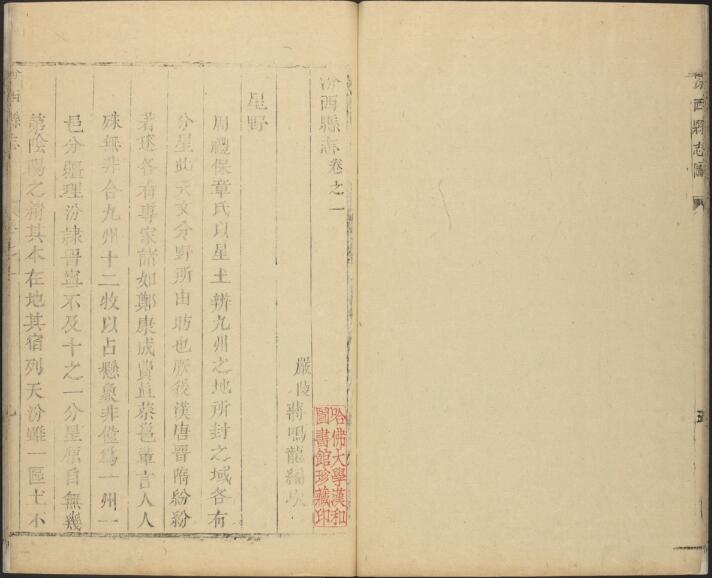 汾西縣志圖
汾西縣志卷之一
嚴陵蔣鳴龍編次
哈佛大學漢和
圖書館珍藏印
星野
周禮保章氏以星土辨九州之地所封之域各有
分星此天文分野所由昉也厥後漢唐晉隋紛紛
著述各有專家諸如鄭康成費直蔡邕輩言人人
殊無非合九州十二牧以占懸象非僅爲一州一
邑分疆理汾隸晉寧不及十之一分星原自無幾
第陰陽之精其本在地其宿列天汾雖一區土不
汾西縣志